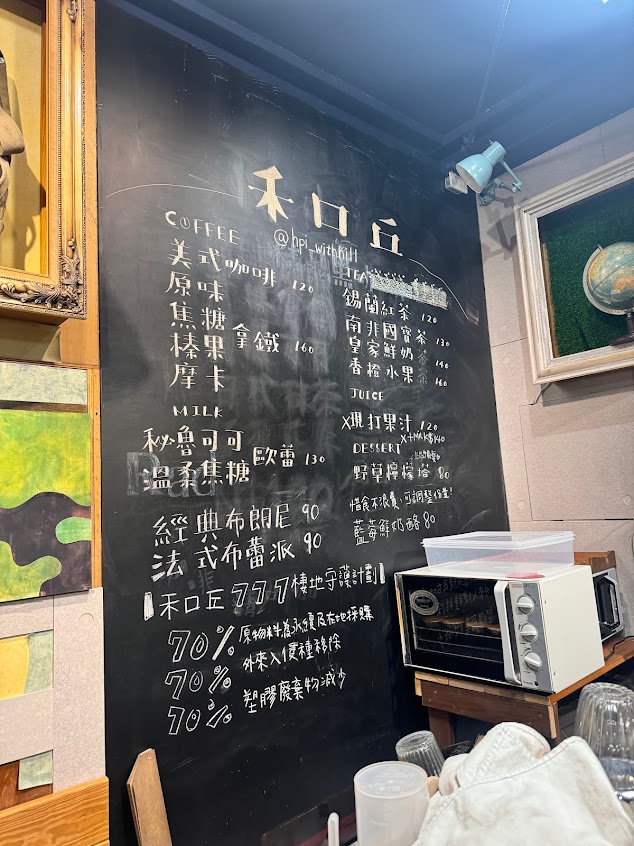 禾口丘
@hpi_withhill
COFFEE
美式咖啡 120
原味
焦糖
榛果 拿鐵 160
摩卡
MILK
秘魯可可
溫柔焦糖 歐蕾 130
經典布朗尼 90
法式布蕾派 90
禾口丘777棲地守護計劃
70% 原物料為永續及在地採購
70% 外來入侵種移除
70% 塑膠廢棄物減少
TEA
錫蘭紅茶 120
南非國寶茶 130
皇家鮮奶茶 140
香橙水果茶 160
JUICE
X現打果汁 120
DESSERT
野草檸檬塔 80
惜食不浪費,可調整份量!
藍莓鮮奶酪 80